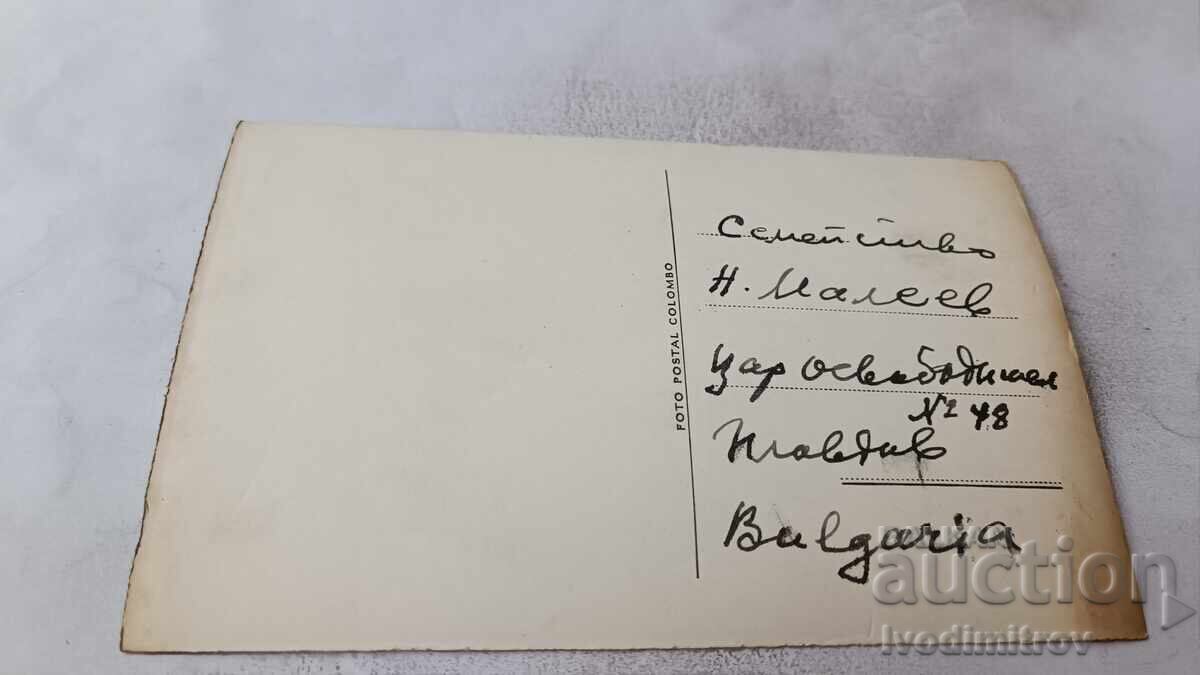 FOTO POSTAL COLOMBO
Семейство
Н. Малеев
Цар Освободител
№ 48
Пловдив
Bulgaria
auction
Ivodimitrov